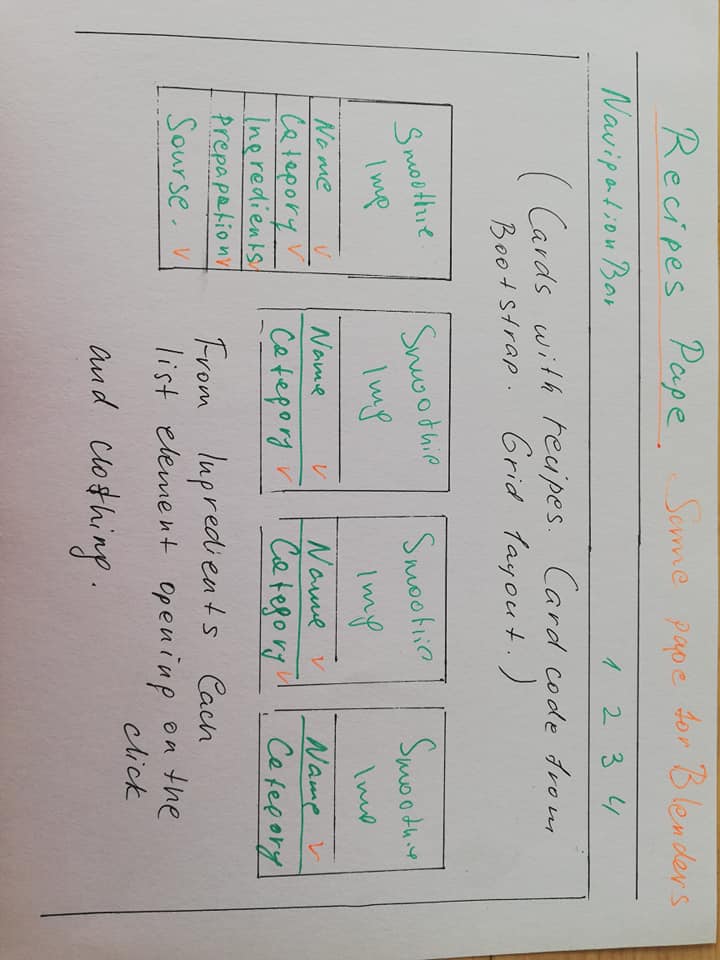 Recipes Pape Same pape for Blenders
NavipationBar 1 2 3 4
( Cards with recipes. Card code from
Bootstrap. Grid layout. )
Smoothie
Img
Name v
Category v
Ingredients v
Prepapation v
Sourse. v
Smoothie
Img
Name v
Category v
Smoothie
Img
Name v
Category v
Smoothie
Img
Name v
Category
From Ingredients each
list element opening on the
click
and clothing.